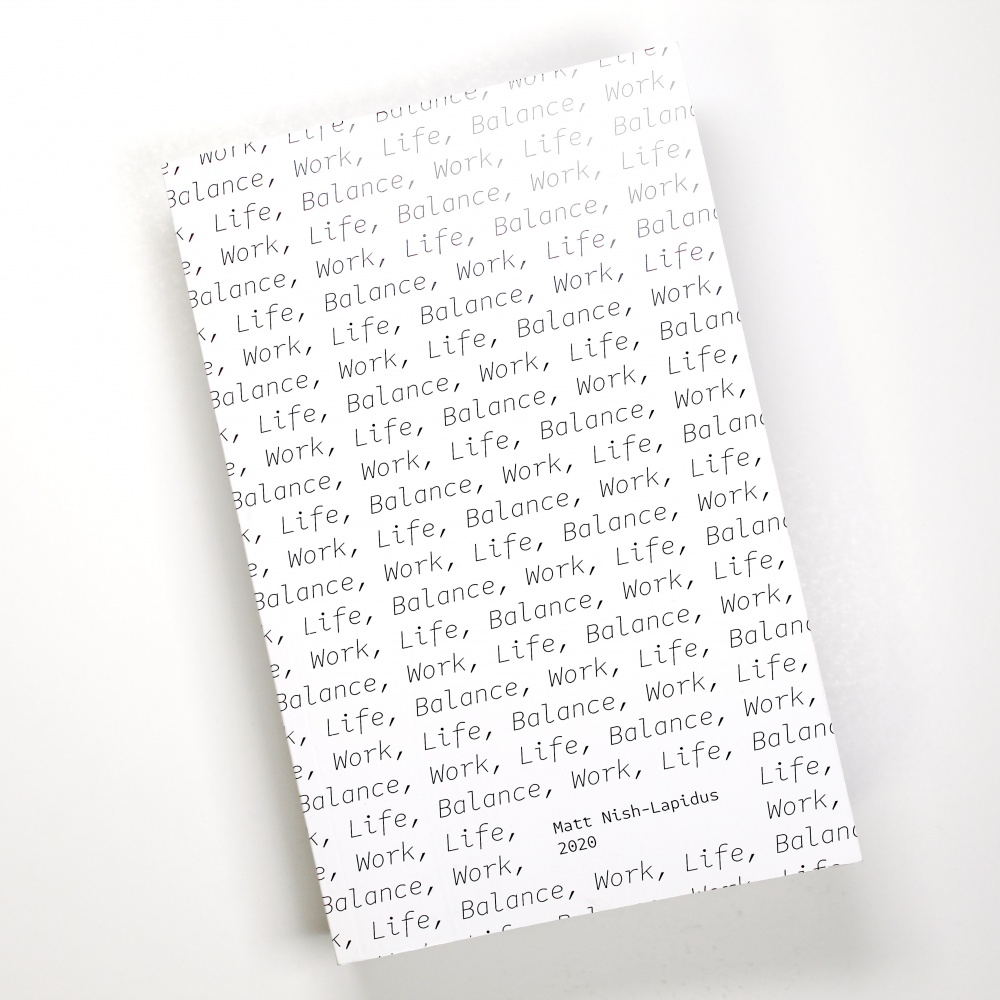 e, Work, Life, Balance, Work, Life,
Balance, Work, Life, Balance, Work,
k, Life, Balance, Work, Life, Balanc
e, Work, Life, Balance, Work, Life,
Balance, Work, Life, Balance, Work,
k, Life, Balance, Work, Life, Balanc
e, Work, Life, Balance, Work, Life,
Balance, Work, Life, Balance, Work,
k, Life, Balance, Work, Life, Balanc
e, Work, Life, Balance, Work, Life,
Balance, Work, Life, Balance, Work,
k, Life, Balance, Work, Life, Balanc
e, Work, Life, Balance, Work, Life,
Balance, Work, Life, Balance, Work,
k, Life, Balance, Work, Life, Balanc
e, Work, Life, Balance, Work, Life,
Balance, Work, Life, Balance, Work,
k, Life, Balance, Work, Life, Balanc
e, Work, Life, Balance, Work, Life,
Balance, Work, Life, Balance, Work,
k, Life, Balance, Work, Life, Balanc
e, Work, Life, Matt Nish-Lapidus Life,
Balance, Work, 2020 Work,
k, Life, Balance, Work, Life, Balanc
Work, Life